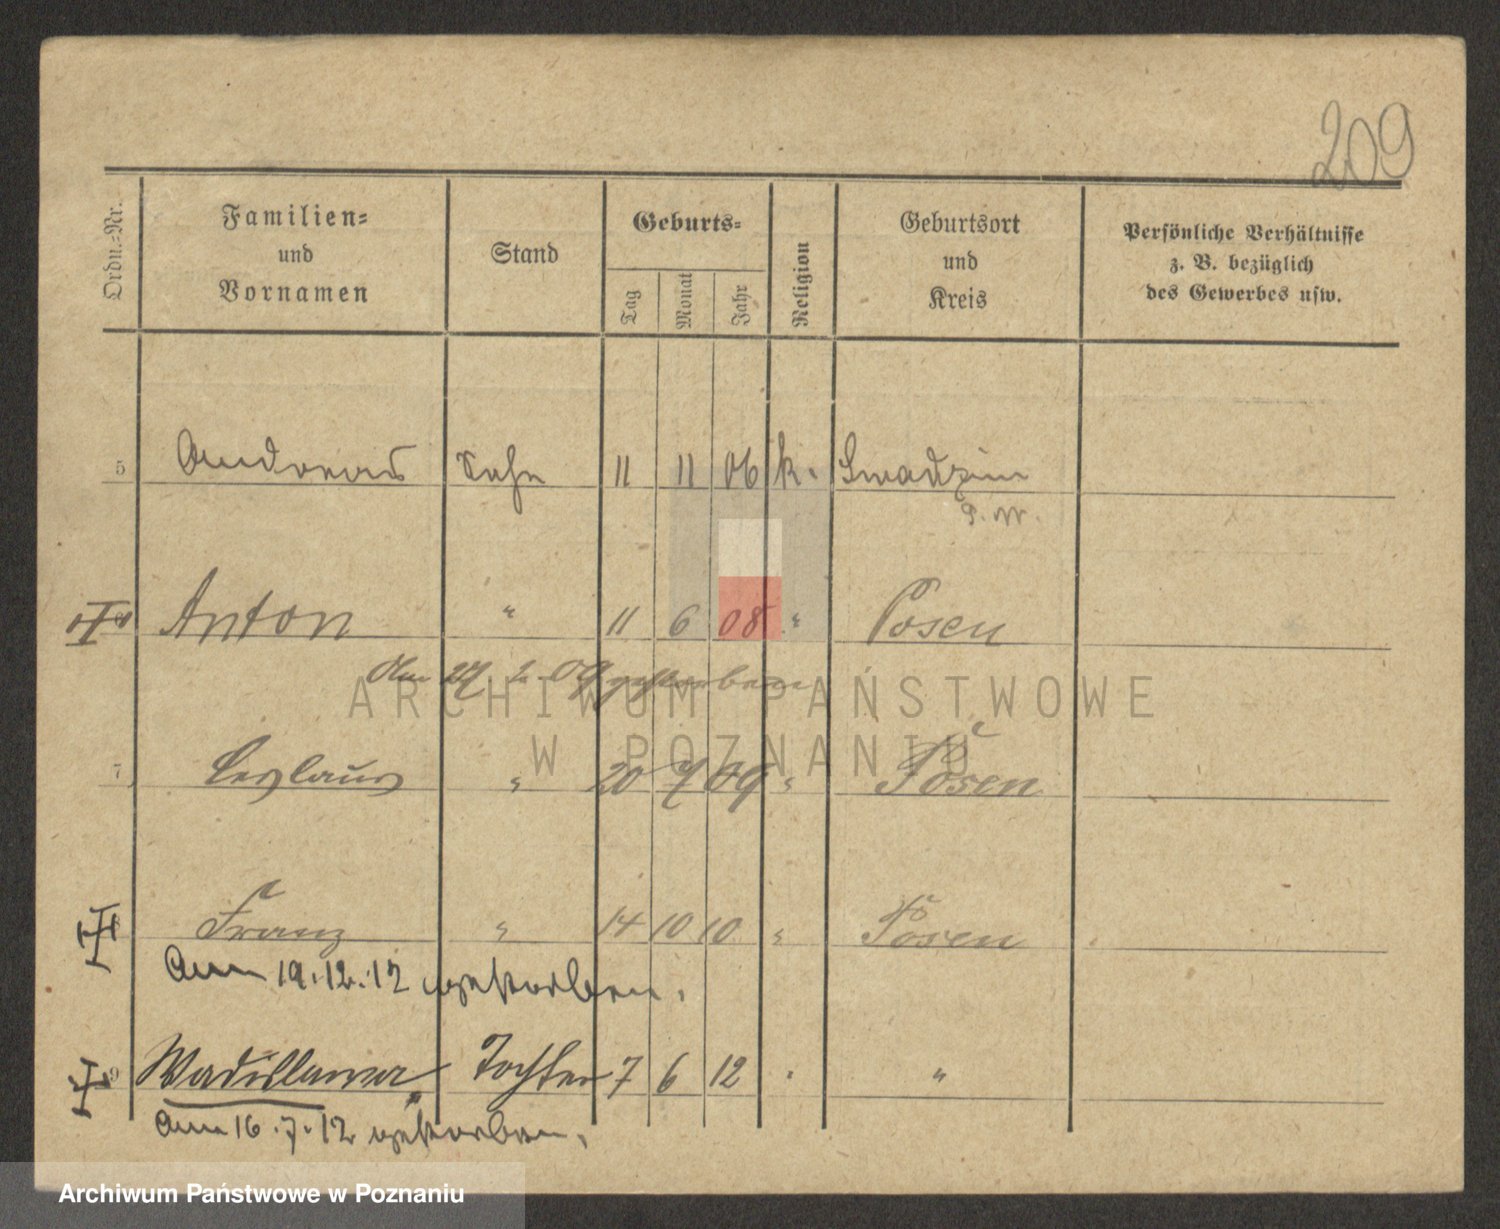 209
Ordn.=Nr.
Familien=
und
Vornamen
Stand
Geburts=
Tag
Monat
Jahr
Religion
Geburtsort
und
Kreis
Persönliche Verhältnisse
z. B. bezüglich
des Gewerbes usw.
5 Andreas Sohn 11 11 06 k. Swadzim
P. W.
Anton " 11 6 08 " Posen
Am 2. 09 gestorben
7 Ceslaus " 20 7 09 " Posen
Franz " 14 10 10 " Posen
Am 19.12.12 gestorben.
9 Wadislawa Tochter 7 6 12 " "
Am 16.7.12 gestorben.
ARCHIWUM PAŃSTWOWE
W POZNANIU
Archiwum Państwowe w Poznaniu